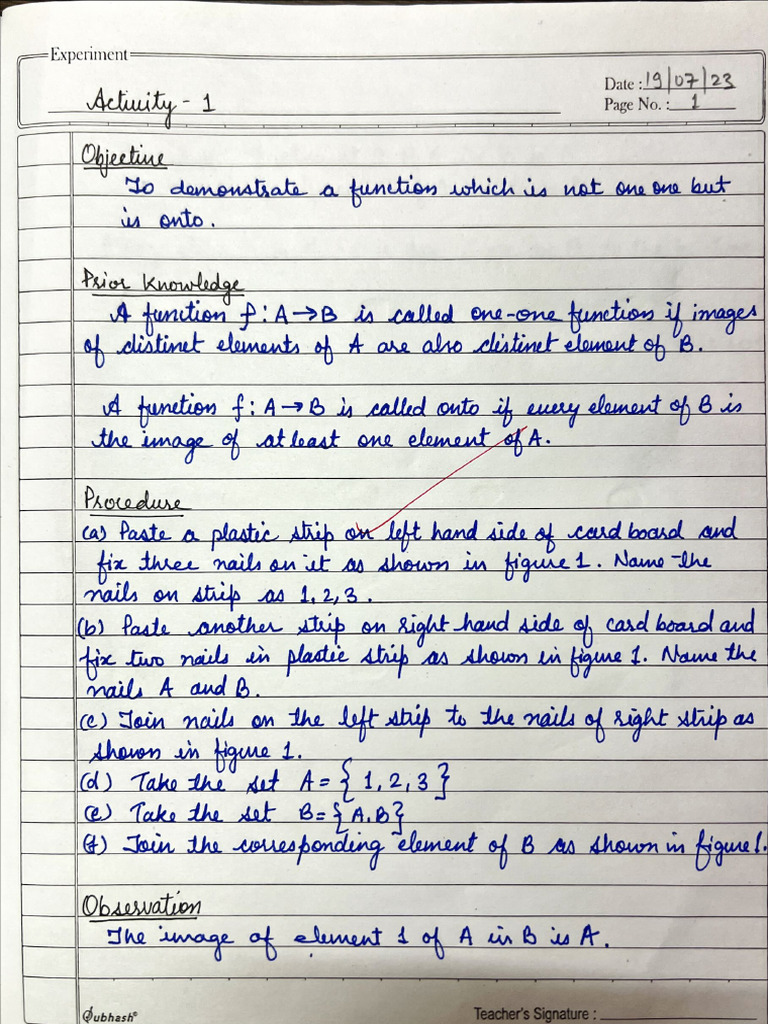 Experiment
Activity - 1
Date : 19/07/23
Page No. : 1
Objective
To demonstrate a function which is not one one but
is onto.
Prior Knowledge
A function f : A → B is called one-one function if images
of distinct elements of A are also distinct element of B.
A function f : A → B is called onto if every element of B is
the image of atleast one element of A.
Procedure
(a) Paste a plastic strip on left hand side of card board and
fix three nails on it as shown in figure 1. Name the
nails on strip as 1, 2, 3.
(b) Paste another strip on right hand side of card board and
fix two nails in plastic strip as shown in figure 1. Name the
nails A and B.
(c) Join nails on the left strip to the nails of right strip as
shown in figure 1.
(d) Take the set A = { 1, 2, 3 }
(e) Take the set B = { A.B }
(f) Join the corresponding element of B as shown in figure 1.
Observation
The image of element 1 of A in B is A.
Subhash®
Teacher's Signature :